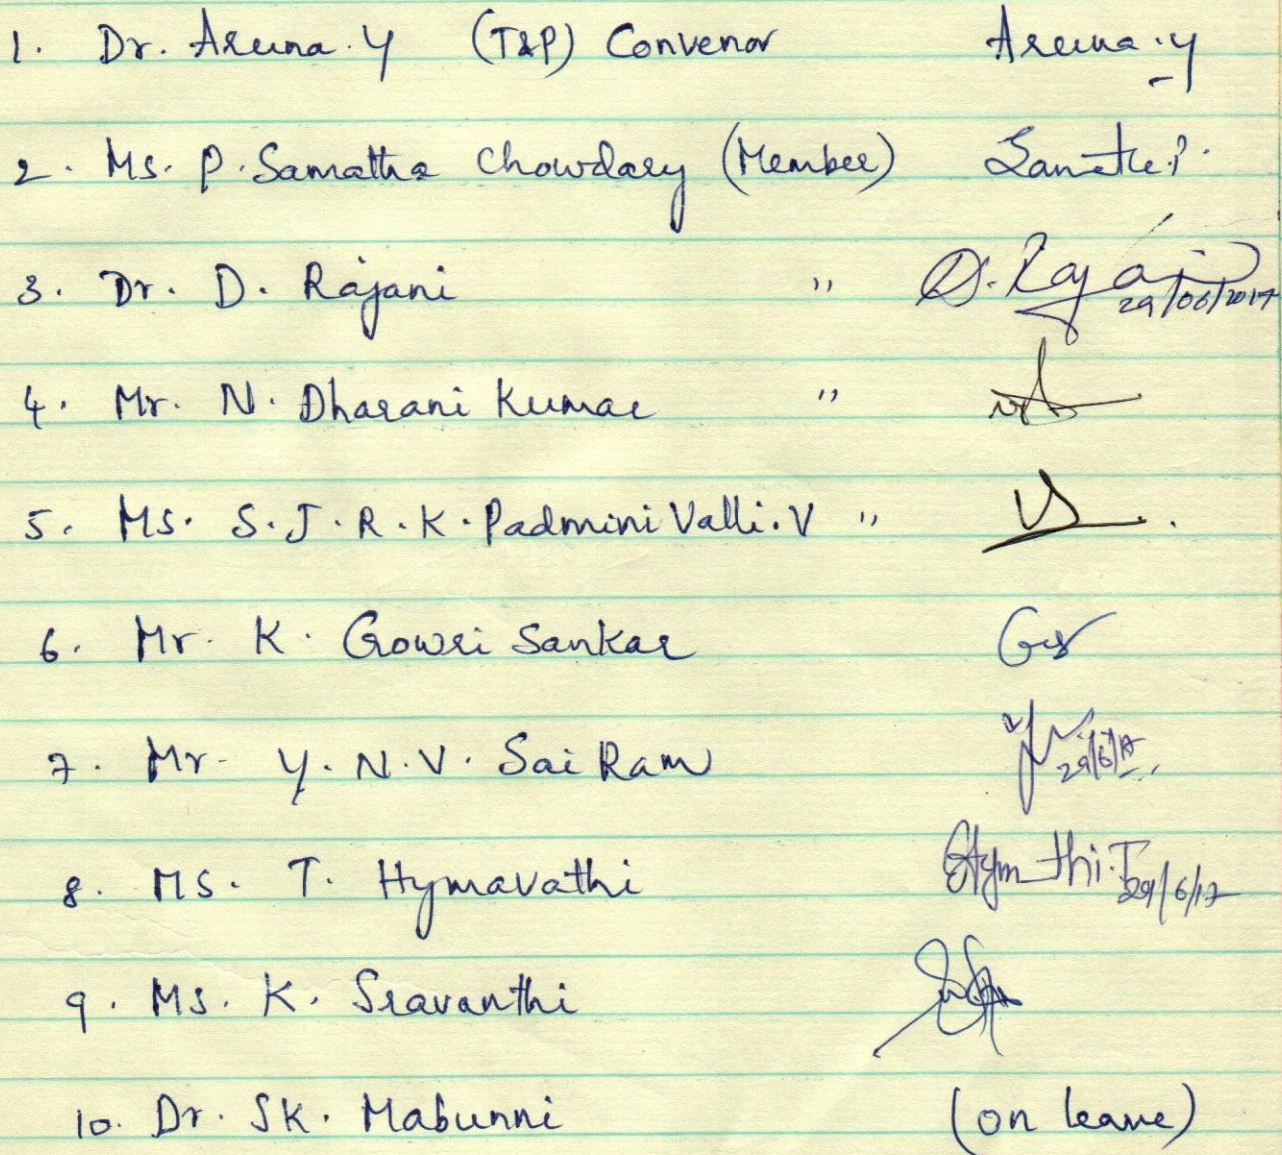 1. Dr. Aruna.Y (T&P) Convenor Aruna.y
2. Ms. P. Samatha Chowdary (Member) Samatha.P.
3. Dr. D. Rajani " D. Rajani 29/06/2017
4. Mr. N. Dharani Kumar "
5. Ms. S.J.R.K. Padmini Valli.V "
6. Mr. K. Gowri Sankar
7. Mr. Y.N.V. Sai Ram 29/6/17
8. Ms. T. Hymavathi 29/6/17
9. Ms. K. Sravanthi
10. Dr. SK. Mabunni (on leave)